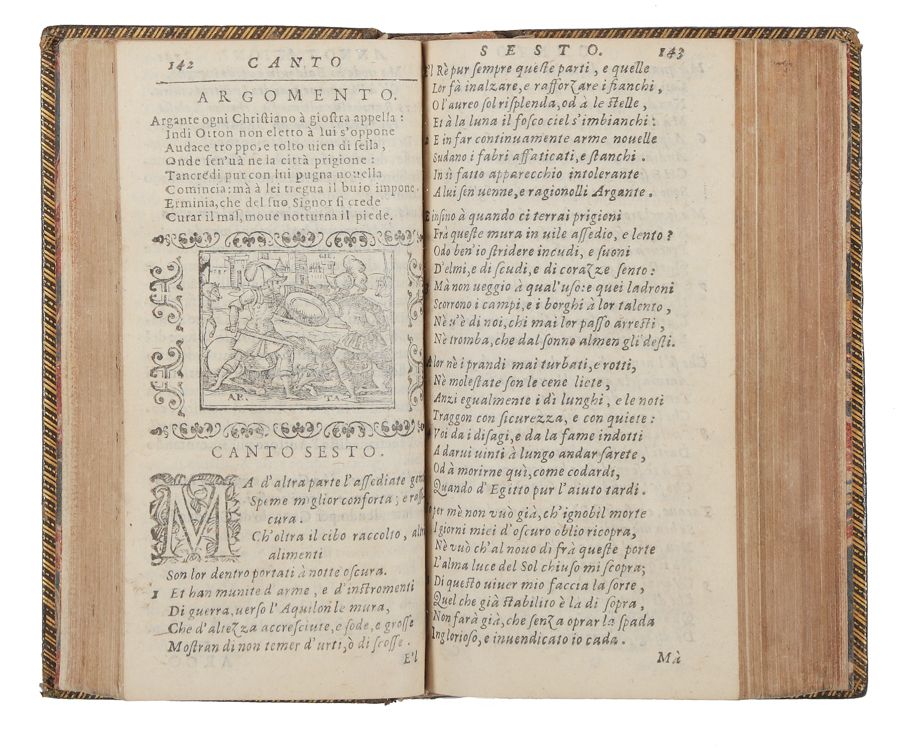 142 CANTO
ARGOMENTO.
Argante ogni Christiano à giostra appella:
Indi Otton non eletto à lui s'oppone
Audace troppo, e tolto uien di sella,
Onde sen'uà ne la città prigione:
Tancredi pur con lui pugna nouella
Comincia: mà à lei tregua il buio impone.
Erminia, che del suo Signor si crede
Curar il mal, moue notturna il piede.
AR. TA.
CANTO SESTO.
MA d'altra parte l'assediate
Speme miglior conforta; e
cura.
Ch'oltra il cibo raccolto,
alimenti
Son lor dentro portati à notte oscura.
1 Et han munite d'arme, e d'instromenti
Di guerra, uerso l'Aquilon le mura,
Che d'altezza accresciute, e sode, e grosse
Mostran di non temer d'urti, ò di scosse.
E'l
SESTO. 143
E'l Rè pur sempre queste parti, e quelle
Lor fà inalzare, e rafforzare i fianchi,
O l'aureo sol risplenda, od à le stelle,
Et à la luna il fosco ciel s'imbianchi:
E in far continuamente arme nouelle
Sudano i fabri affaticati, e stanchi.
In sì fatto apparecchio intolerante
A lui sen uenne, e ragionolli Argante.
E insino à quando ci terrai prigioni
Frà queste mura in uile assedio, e lento?
Odo ben'io stridere incudi, e suoni
D'elmi, e di scudi, e di corazze sento:
Mà non ueggio à qual'uso: e quei ladroni
Scorrono i campi, e i borghi à lor talento,
Nè u'è di noi, chi mai lor passo arresti,
Nè tromba, che dal sonno almen gli desti.
A lor nè i prandi mai turbati, e rotti,
Nè molestate son le cene liete,
Anzi egualmente i dì lunghi, e le noti
Traggon con sicurezza, e con quiete:
Voi da i disagi, e da la fame indotti
A darui uinti à lungo andar sarete,
Od à morirne quì, come codardi,
Quando d'Egitto pur l'aiuto tardi.
per mè non vuò già, ch'ignobil morte
I giorni miei d'oscuro oblio ricopra,
Nè vuò ch'al nouo dì frà queste porte
L'alma luce del Sol chiuso mi scopra;
Di questo uiuer mio faccia la sorte,
Quel che già stabilito è là di sopra,
Non farà già, che senza oprar la spada
Inglorioso, e inuendicato io cada.
Mà